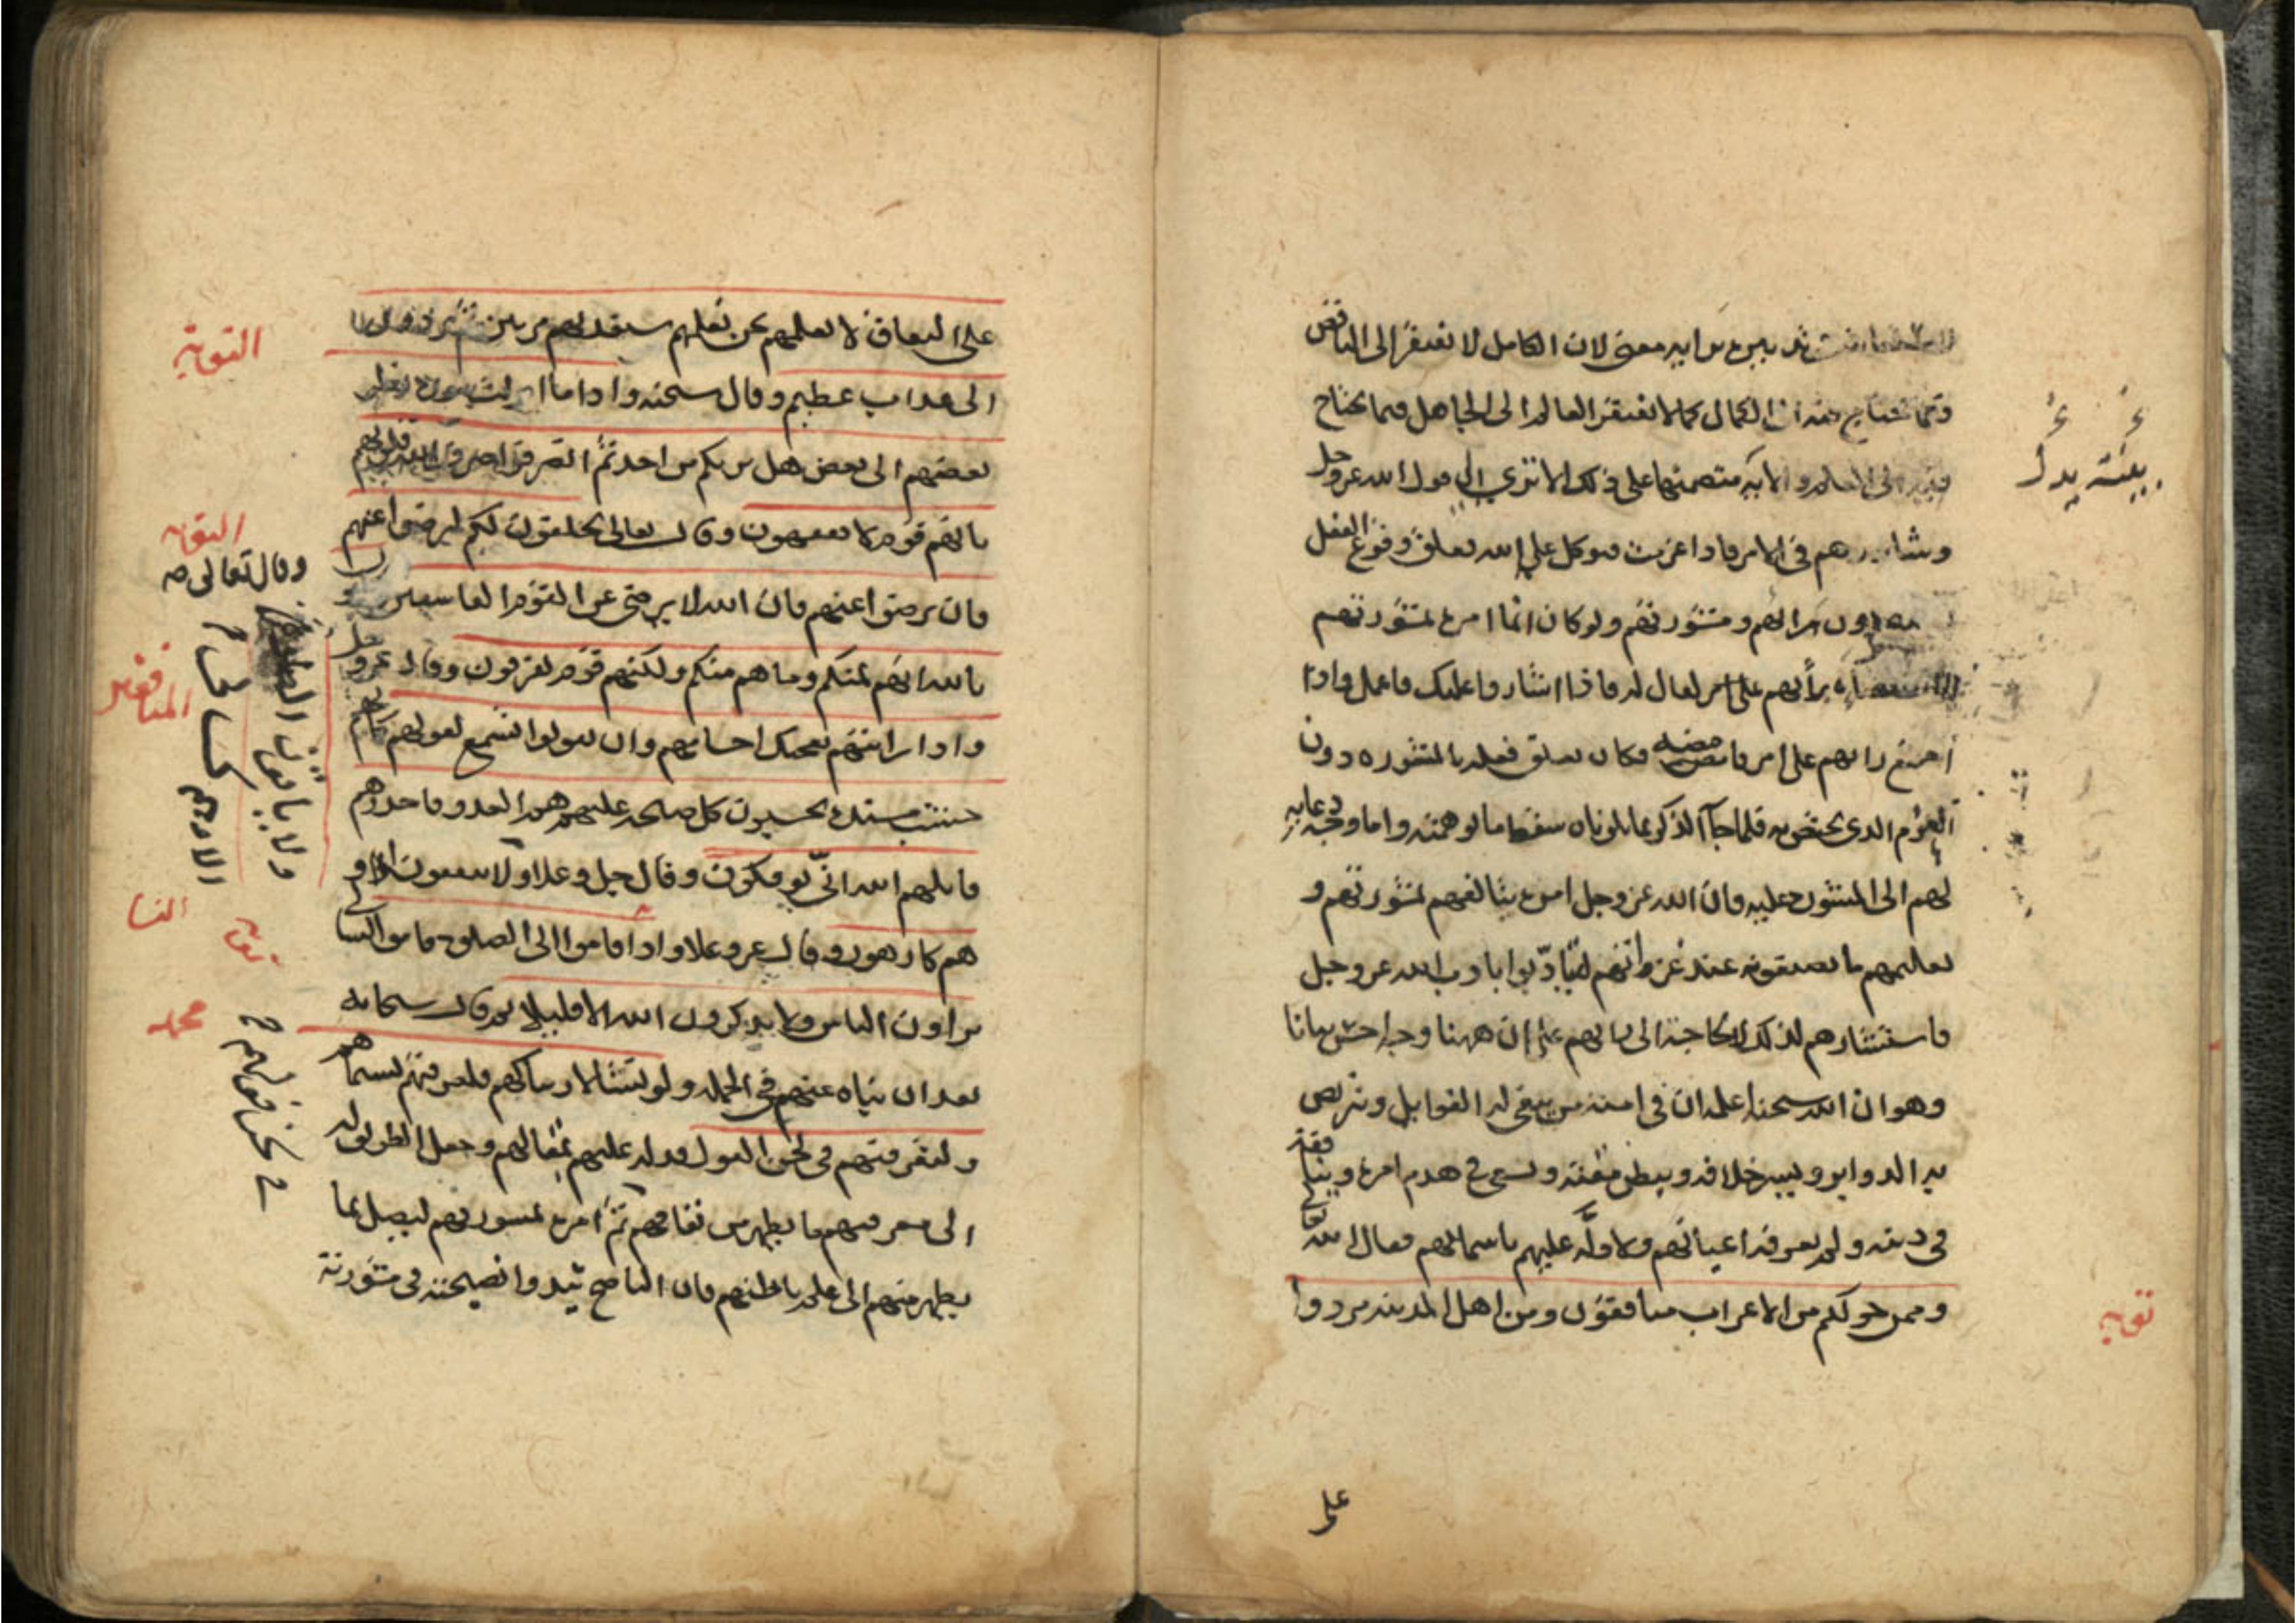 معنى لان الكامل لا يفتقر الى الناقص
الكمال كما لا يفتقر العالم الى الجاهل فيما يحتاج
فيه الى العلم والاية متضمنها على ذلك الا ترى الى قول الله عز وجل
وشاورهم فى الامر فاذا عزمت فتوكل على الله فعلق وقوع الفعل
دون رايهم ومشورتهم ولو كان انما امره بمشورتهم
برأيهم على امر لقال له فاذا اشاروا عليك فاعمل واذا
اجتمع رايهم على امر فامضه فكان تعلق فعله بالمشورة دون
العزم الذى يختص به فلما جآء الذكر بما تلوناه سقط ما توهمته واما وجه دعايه
لهم الى المشورة عليه فان الله عز وجل امره بتالفهم بمشورتهم و
تعليمهم ما يصنعونه عند عزماتهم ليتادّبوا باداب الله عز وجل
فاستشارهم لذلك لا لحاجة الى رايهم على ان ههنا وجها اخر بيانا
وهو ان الله سبحنه اعلمه ان فى امته من يبتغى له الغوايل ويتربص
به الدواير ويسر خلافه ويبطن مقته ويسعى فى هدم امره وينافقه
فى دينه ولم يعرفه اعيانهم ولا دلّه عليهم باسمائهم فقال الله تعالى
وممن حولكم من الاعراب منافقون ومن اهل المدينه مردوا
توبه
على
على النفاق لا تعلمهم نحن نعلمهم سنعذبهم مرتين ثم يردون
الى عذاب عظيم وقال سبحنه واذا ما انزلت سورة نظر
بعضهم الى بعض هل يريكم من احد ثم انصرفوا صرف الله قلوبهم
بانهم قوم لا يفقهون وقال تعالى يحلفون لكم لترضوا عنهم
فان ترضوا عنهم فان الله لا يرضى عن القوم الفاسقين
بالله انهم لمنكم وما هم منكم ولكنهم قوم يفرقون وقال عز وجل
واذا رايتهم تعجبك اجسامهم وان يقولوا تسمع لقولهم كانهم
خشب مسندة يحسبون كل صيحة عليهم هم العدو فاحذرهم
قاتلهم الله انّى يؤفكون وقال جل وعلا ولا ينفقون الا و
هم كارهون وقال عز وعلا واذا قاموا الى الصلوة قاموا كسالى
يراءون الناس ولا يذكرون الله الا قليلا ثم قال سبحانه
بعد ان نباه عنهم فى الجملة ولو نشاء لاريناكهم فلعرفتهم بسيماهم
ولتعرفنهم فى لحن القول فدله عليهم بمقالهم وجعل الطريق له
الى معرفتهم ما يظهر من نفاقهم ثم امره بمشورتهم ليصل بما
يظهر منهم الى علم باطنهم فان الناصح تبدوا نصيحته فى مشورته
التوبه
التوبه
وقال تعالى
ولا ياتون الصلوة
الا وهم كسالى
المنافقين
النسا
محمد